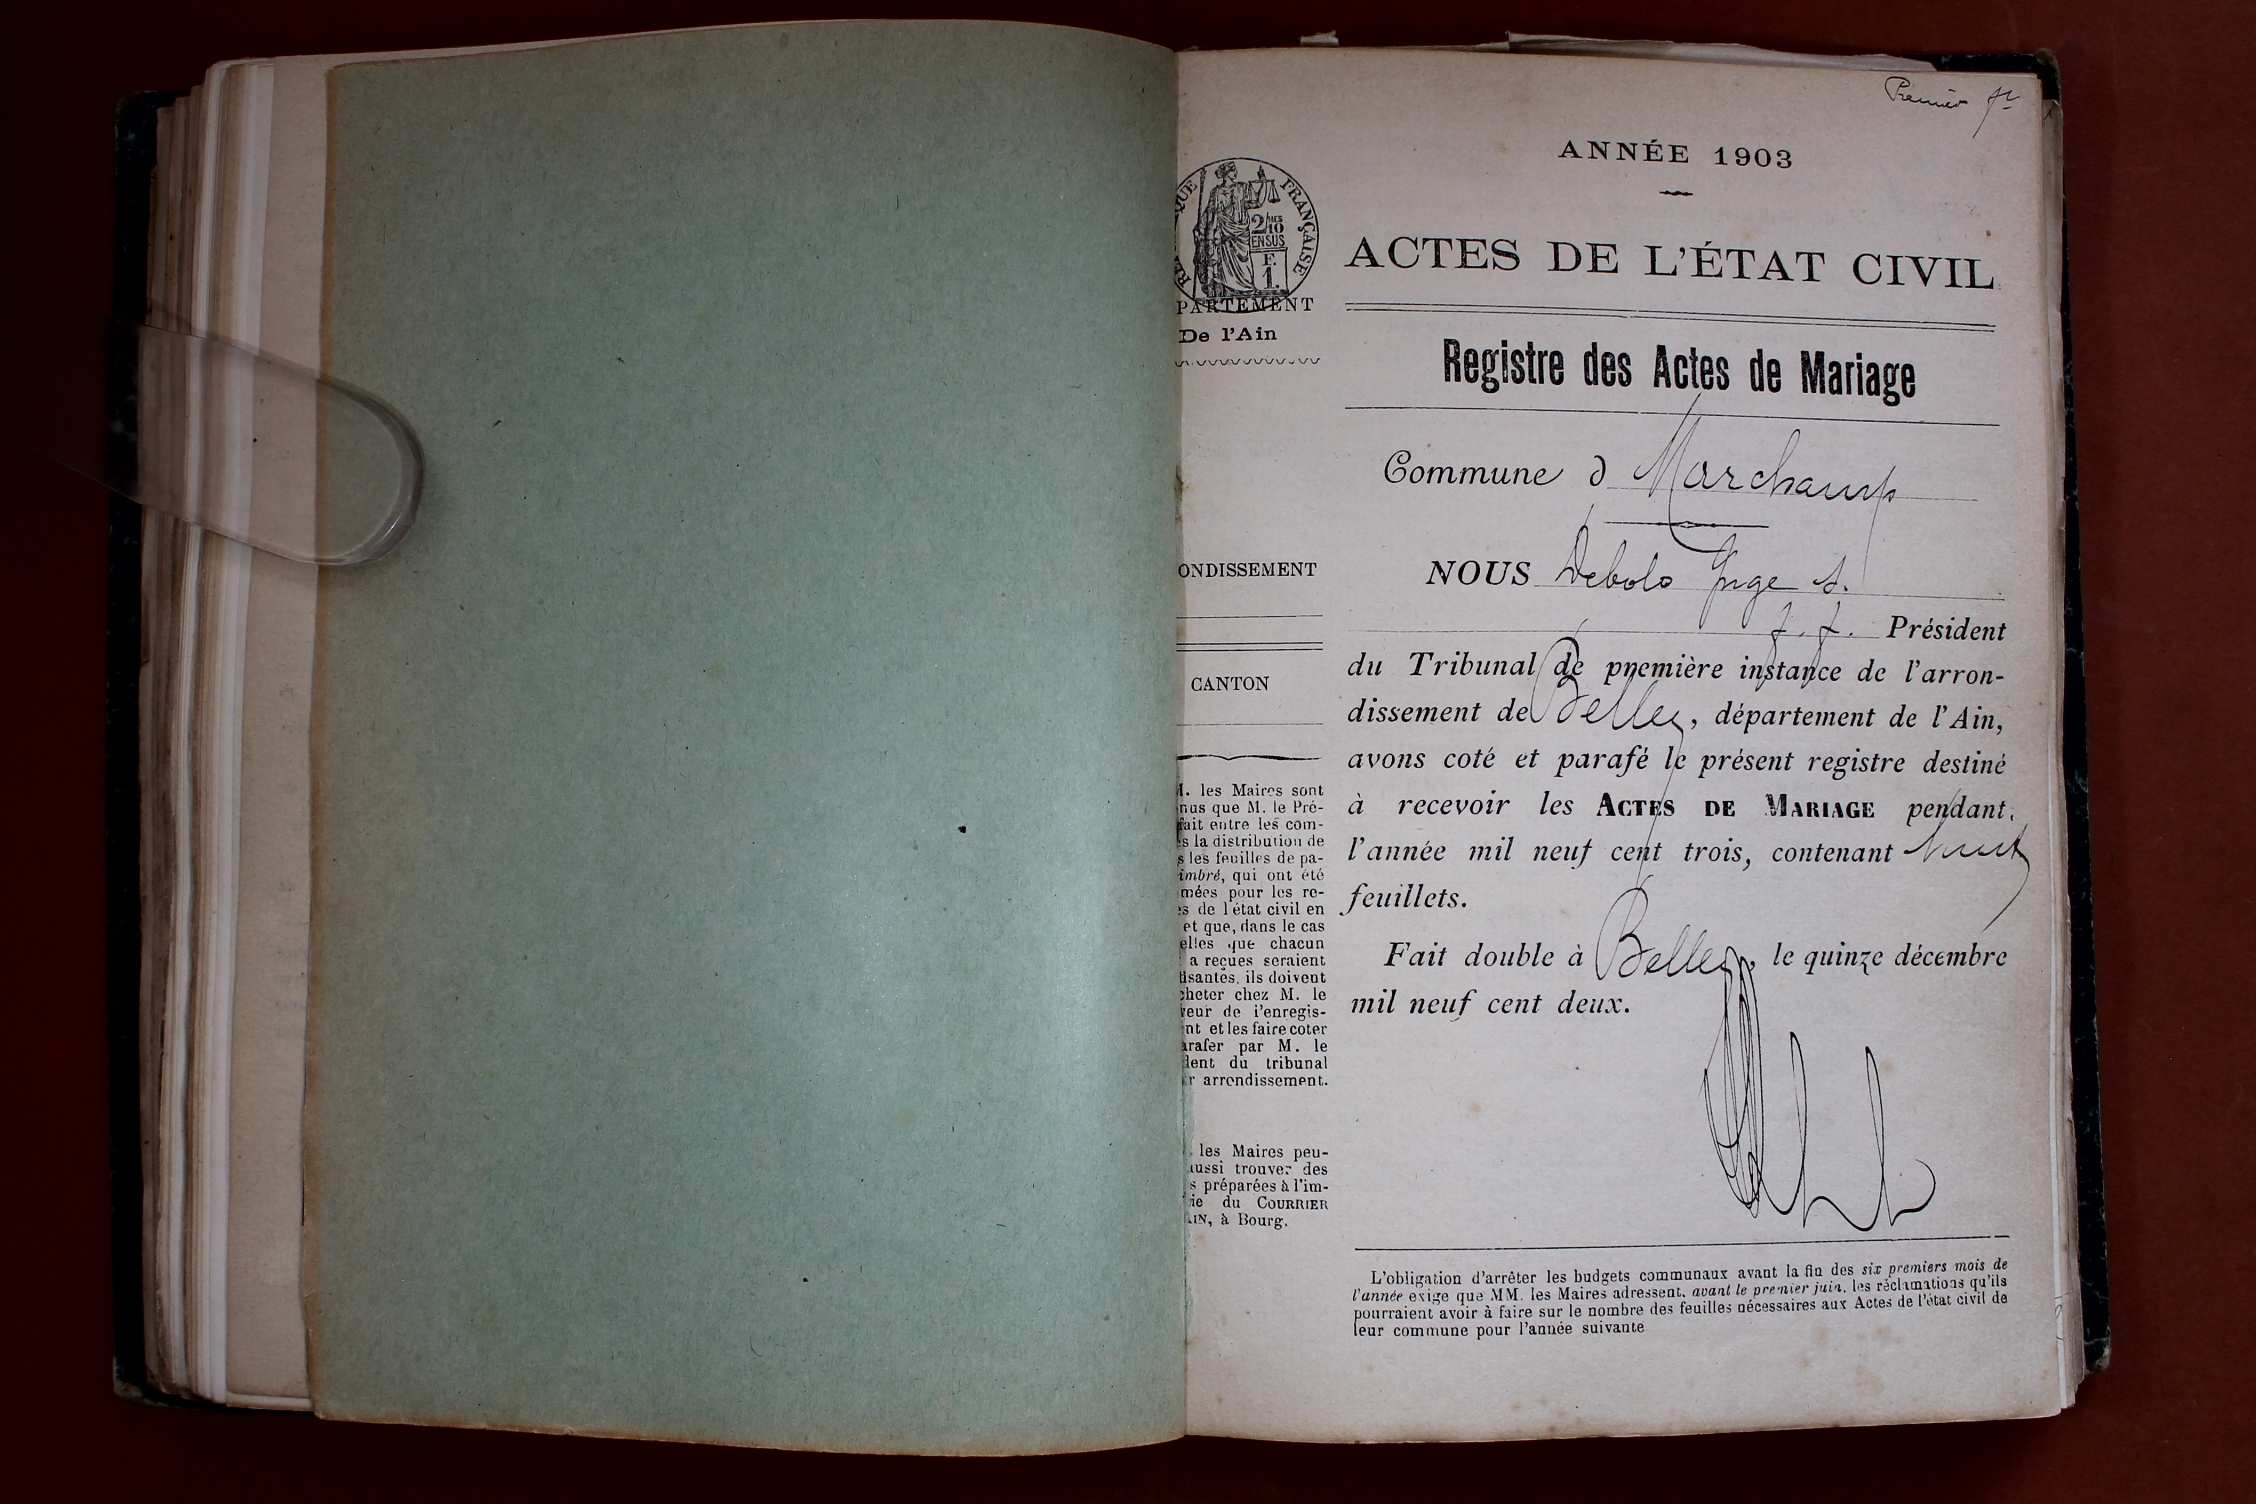 Premier ft
ANNÉE 1903
RÉPUBLIQUE FRANÇAISE
2/10MES
EN SUS
F.
1.
PARTEMENT
De l'Ain
ACTES DE L'ÉTAT CIVIL
Registre des Actes de Mariage
Commune d Marchamp
NOUS Debolo Juge s.
f. f. Président
du Tribunal de première instance de l'arron-
dissement de Belley, département de l'Ain,
avons coté et parafé le présent registre destiné
à recevoir les ACTES DE MARIAGE pendant
l'année mil neuf cent trois, contenant huit
feuillets.
Fait double à Belley, le quinze décembre
mil neuf cent deux.
ONDISSEMENT
CANTON
M. les Maires sont
nus que M. le Pré-
fait entre les com-
s la distribution de
s les feuilles de pa-
imbré, qui ont été
mées pour les re-
es de l'état civil en
et que, dans le cas
elles que chacun
a reçues seraient
isantes, ils doivent
cheter chez M. le
veur de l'enregis-
nt et les faire coter
arafer par M. le
dent du tribunal
r arrondissement.
. les Maires peu-
aussi trouver des
s préparées à l'im-
rie du COURRIER
AIN, à Bourg.
L'obligation d'arrêter les budgets communaux avant la fin des six premiers mois de
l'année exige que MM. les Maires adressent, avant le premier juin, les réclamations qu'ils
pourraient avoir à faire sur le nombre des feuilles nécessaires aux Actes de l'état civil de
leur commune pour l'année suivante